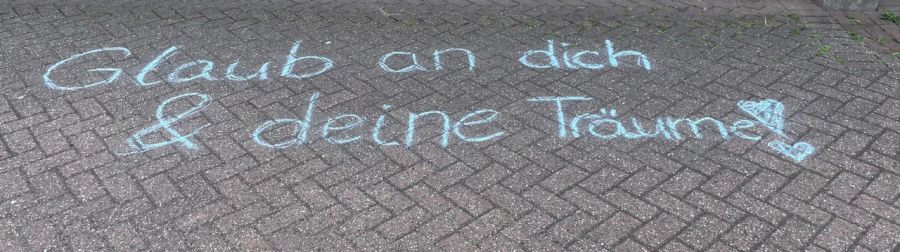 Glaub an dich
& deine Träume!